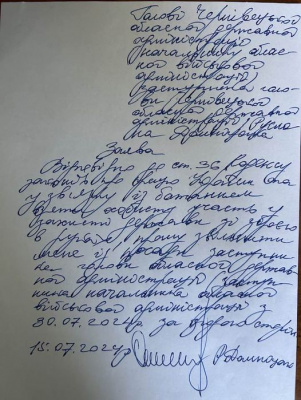 Голові Чернівецької
обласної державної
адміністрації
начальнику облас-
ної військової
адміністрації
заступника голо-
ви Чернівецької
обласної державної
адміністрації
Заява
Відповідно до ст. 36 Кодексу
законів про працю України та
у зв'язку із бажанням
взяти особисту участь у
захисті держави зі зброєю
в руках, прошу звільнити
мене із посади заступни-
ка голови обласної держав-
ної адміністрації заступ-
ника начальника обласної
військової адміністрації з
30.07.2024р. за угодою сторін
15.07.2024р